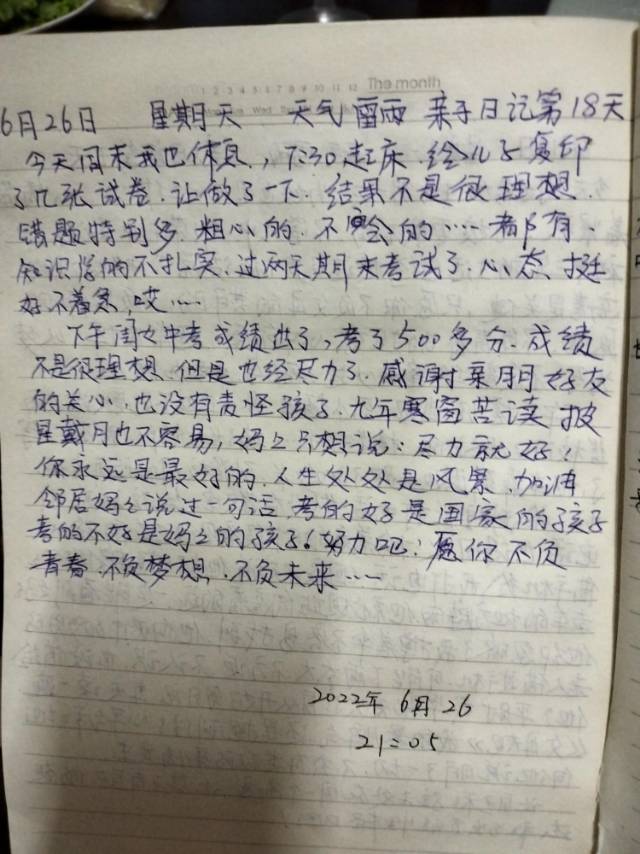 1 2 3 4 5 6 7 8 9 10 11 12 The month
6月26日 星期天 天气 雷雨 亲子日记第18天
今天周末我也休息,7:30起床.给儿子复印
了几张试卷.让做了一下.结果不是很理想.
错题特别多.粗心的.不会的……都有.
知识学的不扎实.过两天期末考试了.心态挺
好不着急,哎……
下午闺女中考成绩出了,考了500多分.成绩
不是很理想.但是也经尽力了.感谢亲朋好友
的关心.也没有责怪孩子.九年寒窗苦读 披
星戴月也不容易,妈妈只想说:尽力就好!
你永远是最好的.人生处处是风景.加油
邻居妈妈说过一句话.考的好是国家的孩子
考的不好是妈妈的孩子!努力吧!愿你不负
青春.不负梦想.不负未来……
2022年 6月 26
21:05